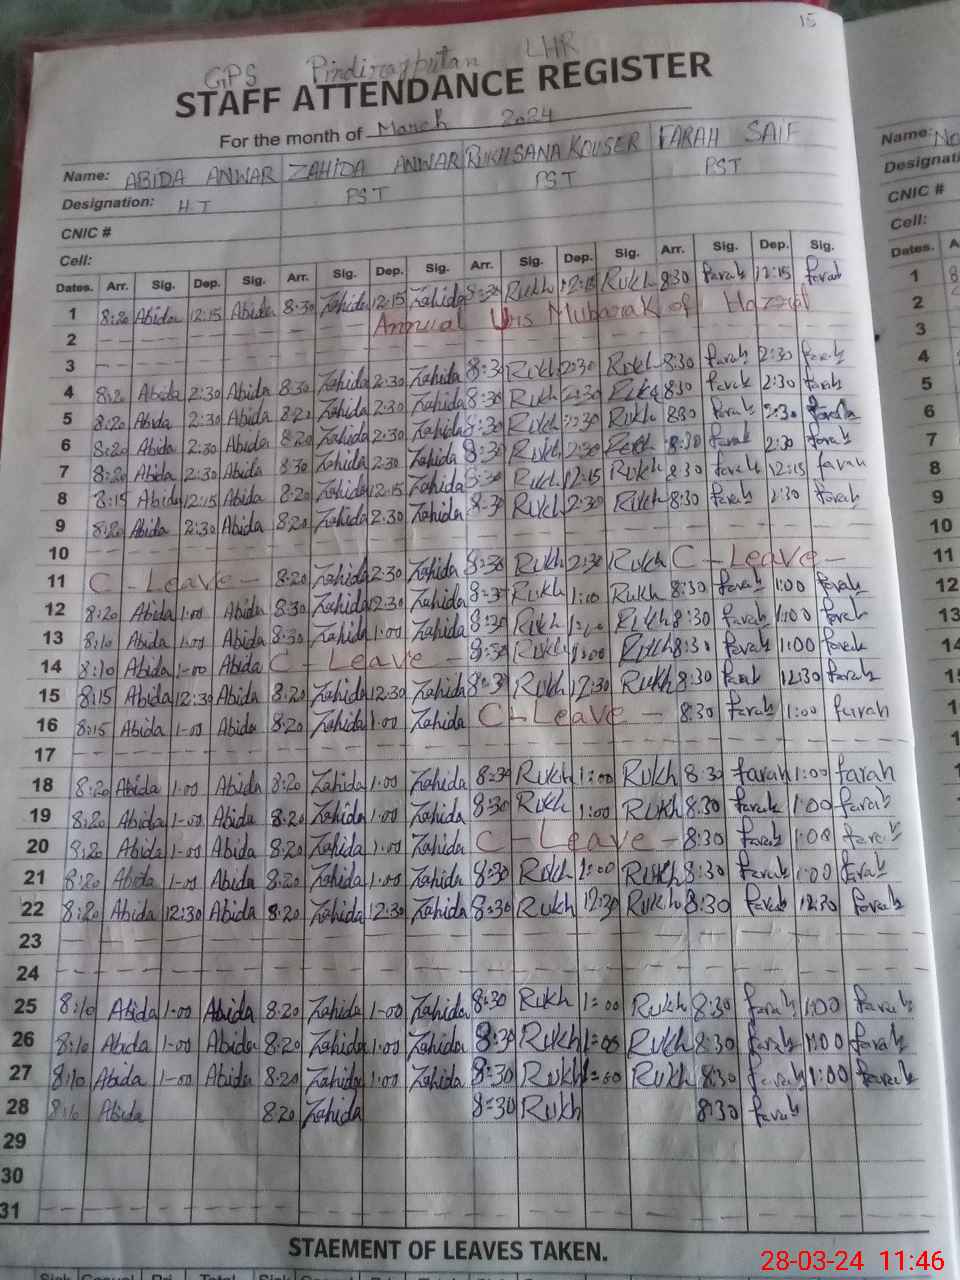 15
GPS Pindirajputan LHR
STAFF ATTENDANCE REGISTER
For the month of March 2024
Name: ABIDA ANWAR ZAHIDA ANWAR RUKHSANA KOUSER FARAH SAIF
Designation: HT PST PST PST
CNIC #
Cell:
Dates. Arr. Sig. Dep. Sig. Arr. Sig. Dep. Sig. Arr. Sig. Dep. Sig. Arr. Sig. Dep. Sig.
1 8:20 Abida 12:15 Abida 8:30 Zahida 12:15 Zahida 8:30 Rukh 12:15 Rukh 8:30 farah 12:15 farah
2 Annual Urs Mubarak of Hazrat
3
4 8:20 Abida 2:30 Abida 8:30 Zahida 2:30 Zahida 8:30 Rukh 2:30 Rukh 8:30 farah 2:30 farah
5 8:20 Abida 2:30 Abida 8:20 Zahida 2:30 Zahida 8:30 Rukh 2:30 Rukh 8:30 farah 2:30 farah
6 8:20 Abida 2:30 Abida 8:20 Zahida 2:30 Zahida 8:30 Rukh 2:30 Rukh 8:30 farah 2:30 farah
7 8:20 Abida 2:30 Abida 8:30 Zahida 2:30 Zahida 8:30 Rukh 2:30 Rukh 8:30 farah 2:30 farah
8 8:15 Abida 12:15 Abida 8:20 Zahida 12:15 Zahida 8:30 Rukh 12:15 Rukh 8:30 farah 12:15 farah
9 8:20 Abida 2:30 Abida 8:20 Zahida 2:30 Zahida 8:30 Rukh 2:30 Rukh 8:30 farah 2:30 farah
10
11 C - Leave - 8:20 Zahida 2:30 Zahida 8:30 Rukh 2:30 Rukh C - Leave -
12 8:20 Abida 1:00 Abida 8:30 Zahida 2:30 Zahida 8:30 Rukh 1:00 Rukh 8:30 farah 1:00 farah
13 8:10 Abida 1:00 Abida 8:30 Zahida 1:00 Zahida 8:30 Rukh 1:00 Rukh 8:30 farah 1:00 farah
14 8:10 Abida 1-00 Abida C - Leave - 8:30 Rukh 1:00 Rukh 8:30 farah 1:00 farah
15 8:15 Abida 12:30 Abida 8:20 Zahida 12:30 Zahida 8:30 Rukh 12:30 Rukh 8:30 farah 12:30 farah
16 8:15 Abida 1-00 Abida 8:20 Zahida 1:00 Zahida C - Leave - 8:30 farah 1:00 farah
17
18 8:20 Abida 1:00 Abida 8:20 Zahida 1:00 Zahida 8:30 Rukh 1:00 Rukh 8:30 farah 1:00 farah
19 8:20 Abida 1-00 Abida 8:20 Zahida 1:00 Zahida 8:30 Rukh 1:00 Rukh 8:30 farah 1:00 farah
20 8:20 Abida 1-00 Abida 8:20 Zahida 1:00 Zahida C - Leave - 8:30 farah 1:00 farah
21 8:20 Abida 1-00 Abida 8:20 Zahida 1:00 Zahida 8:30 Rukh 1:00 Rukh 8:30 farah 1:00 farah
22 8:20 Abida 12:30 Abida 8:20 Zahida 12:30 Zahida 8:30 Rukh 12:30 Rukh 8:30 farah 12:30 farah
23
24
25 8:10 Abida 1-00 Abida 8:20 Zahida 1-00 Zahida 8:30 Rukh 1:00 Rukh 8:30 farah 1:00 farah
26 8:10 Abida 1-00 Abida 8:20 Zahida 1:00 Zahida 8:30 Rukh 1:00 Rukh 8:30 farah 1:00 farah
27 8:10 Abida 1-00 Abida 8:20 Zahida 1:00 Zahida 8:30 Rukh 1:00 Rukh 8:30 farah 1:00 farah
28 8:10 Abida 8:20 Zahida 8:30 Rukh 8:30 farah
29
30
31
STAEMENT OF LEAVES TAKEN.
Name:
CNIC #
Cell:
Dates.
1
2
3
4
5
6
7
8
9
10
11
12
28-03-24 11:46